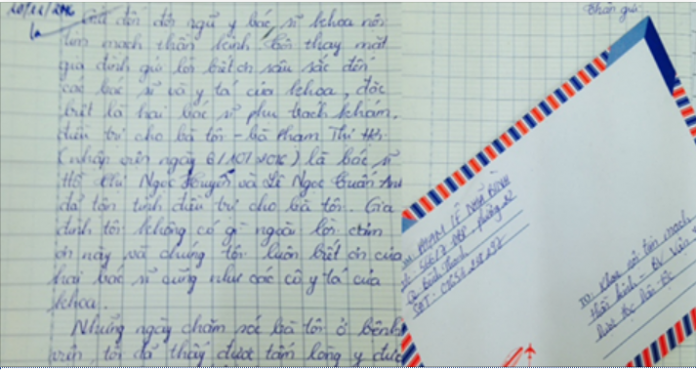 20/12/2016
Gửi đến đội ngũ y bác sĩ khoa nội
tim mạch thần kinh. Tôi thay mặt
gia đình gửi lời biết ơn sâu sắc đến
các bác sĩ và y tá của khoa, đặc
biệt là hai bác sĩ phụ trách khám,
điều trị cho bà tôi - bà Phạm Thị
(nhập viện ngày 6/10/2016) là bác sĩ
Hồ Thị Ngọc Huyền và Lê Ngọc Tuấn Anh
đã tận tình điều trị cho bà tôi. Gia
đình tôi không có gì ngoài lời cám
ơn này và chúng tôi luôn biết ơn của
hai bác sĩ cũng như các cô y tá của
khoa.
Những ngày chăm sóc bà tôi ở bệnh
viện, tôi đã thấy được tấm lòng y đức
Thân gửi:
PHẠM LÊ
Q. Bình Thạnh
SĐT:
To: Khoa nội tim mạch
thần kinh - BV